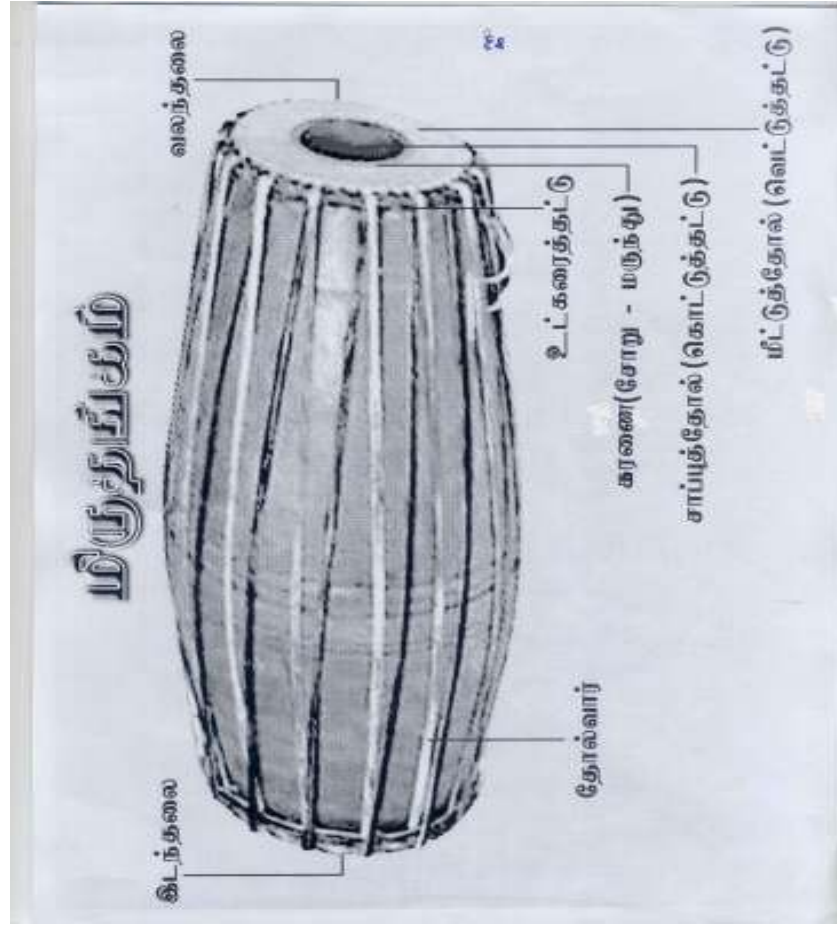 மிருதங்கம்
இடந்தலை
வலந்தலை
தோல்வார்
உட்கரைத்தட்டு
கரணை(சோறு - மருந்து)
சாப்புத்தோல்(கொட்டுத்தட்டு)
மீட்டுத்தோல்(வெட்டுத்தட்டு)